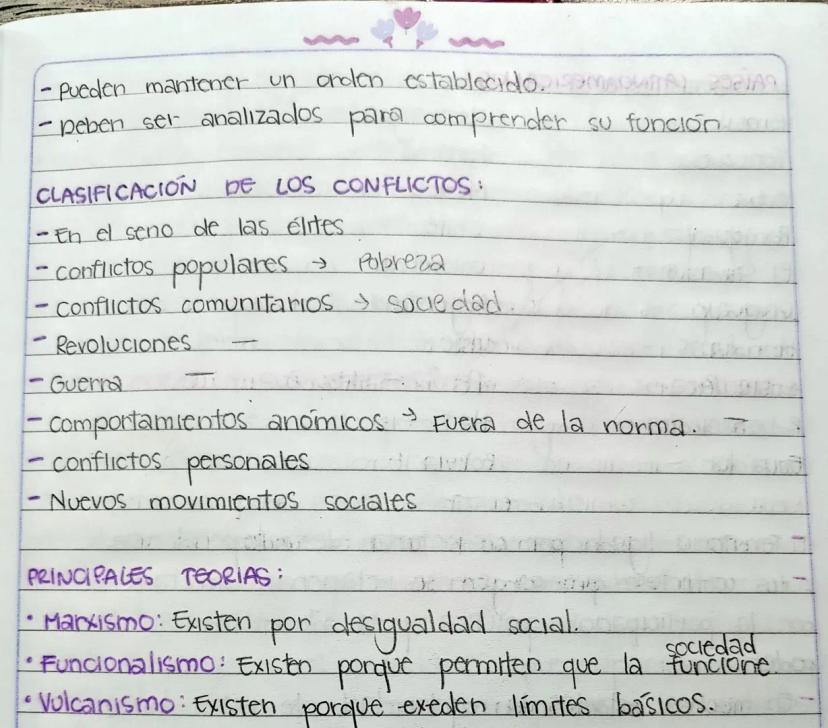 - Pueden mantener un orden establecido.
- Deben ser analizados para comprender su función
CLASIFICACIÓN DE LOS CONFLICTOS:
- En el seno de las élites
- conflictos populares → Pobreza
- conflictos comunitarios → sociedad.
- Revoluciones —
- Guerra —
- comportamientos anómicos → Fuera de la norma. —
- conflictos personales
- Nuevos movimientos sociales
PRINCIPALES TEORIAS:
• Marxismo: Existen por desigualdad social.
• Funcionalismo: Existen porque permiten que la sociedad funcione.
• Vulcanismo: Existen porque exeden límites básicos.